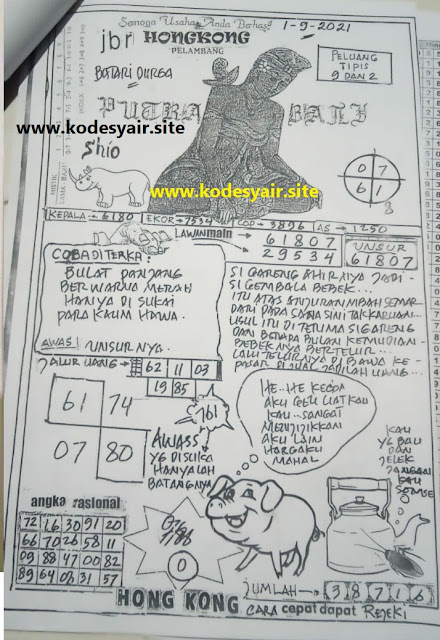 Semoga Usaha Anda Berhasil
1-9-2021
jbr HONGKONG
PELAMBANG
PELUANG
TIPIS
9 DAN 2
BATARI DURGA
PUTRA BALI
www.kodesyair.site
Shio
www.kodesyair.site
0 7
6 1
8
KEPALA → 6180 EKOR → 7534 COP → 3896 AS → 1250
LAWAN MAIN
6 1 8 0 7
2 9 5 3 4
UNSUR
61807
COBA DITERKA:
BULAT PANJANG
BERWARNA MERAH
HANYA DI SUKAI
PARA KAUM HAWA.
AWAS! UNSURNYA.
SI GARENG AHIRNYA JADI-
SI GEMBALA BEBEK...
ITU ATAS ANJURAN MBAH SEMAR
DARI PADA SANA SINI TAK KARUAN...
USUL ITU DI TERIMA SI GARENG
DAN BERAPA BULAN KEMUDIAN-
BEBEKNYA BERTELUR...
LALU TELURNYA DI BAWA KE-
PASAR DI JUAL JADILAH UANG...
JALUR UANG →
62 11 03
19 85
61 74
07 80
161
AWASS
YG DI SUKA
HANYALAH
BATANGNYA
HE..HE KECOA
AKU GELI LIAT KAU
KAU...SANGAT
MENJIJIKKAN
AKU LAIN
HARGAKU
MAHAL
KAU
YG BAU
DAN
JELEK
JANGAN
KAU
angka rasional
72 16 30 91 20
66 70 26 58 11
09 88 47 00 82
89 64 03 31 57
0
JUMLAH → 3 8 7 1 6
HONG KONG CARA cepat dapat REJEKI